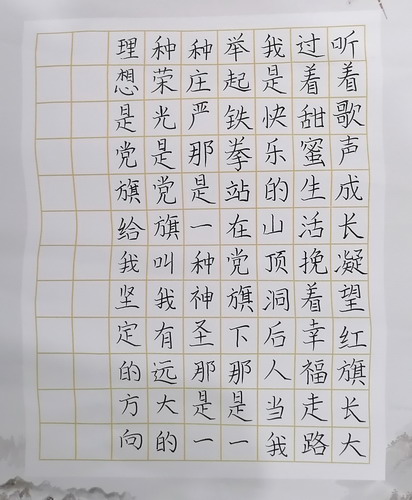 听着歌声成长凝望红旗长大
过着甜蜜生活挽着幸福走路
我是快乐的山顶洞后人当我
举起铁拳站在党旗下那是一
种庄严那是一种神圣那是一
种荣光是党旗叫我有远大的
理想是党旗给我坚定的方向